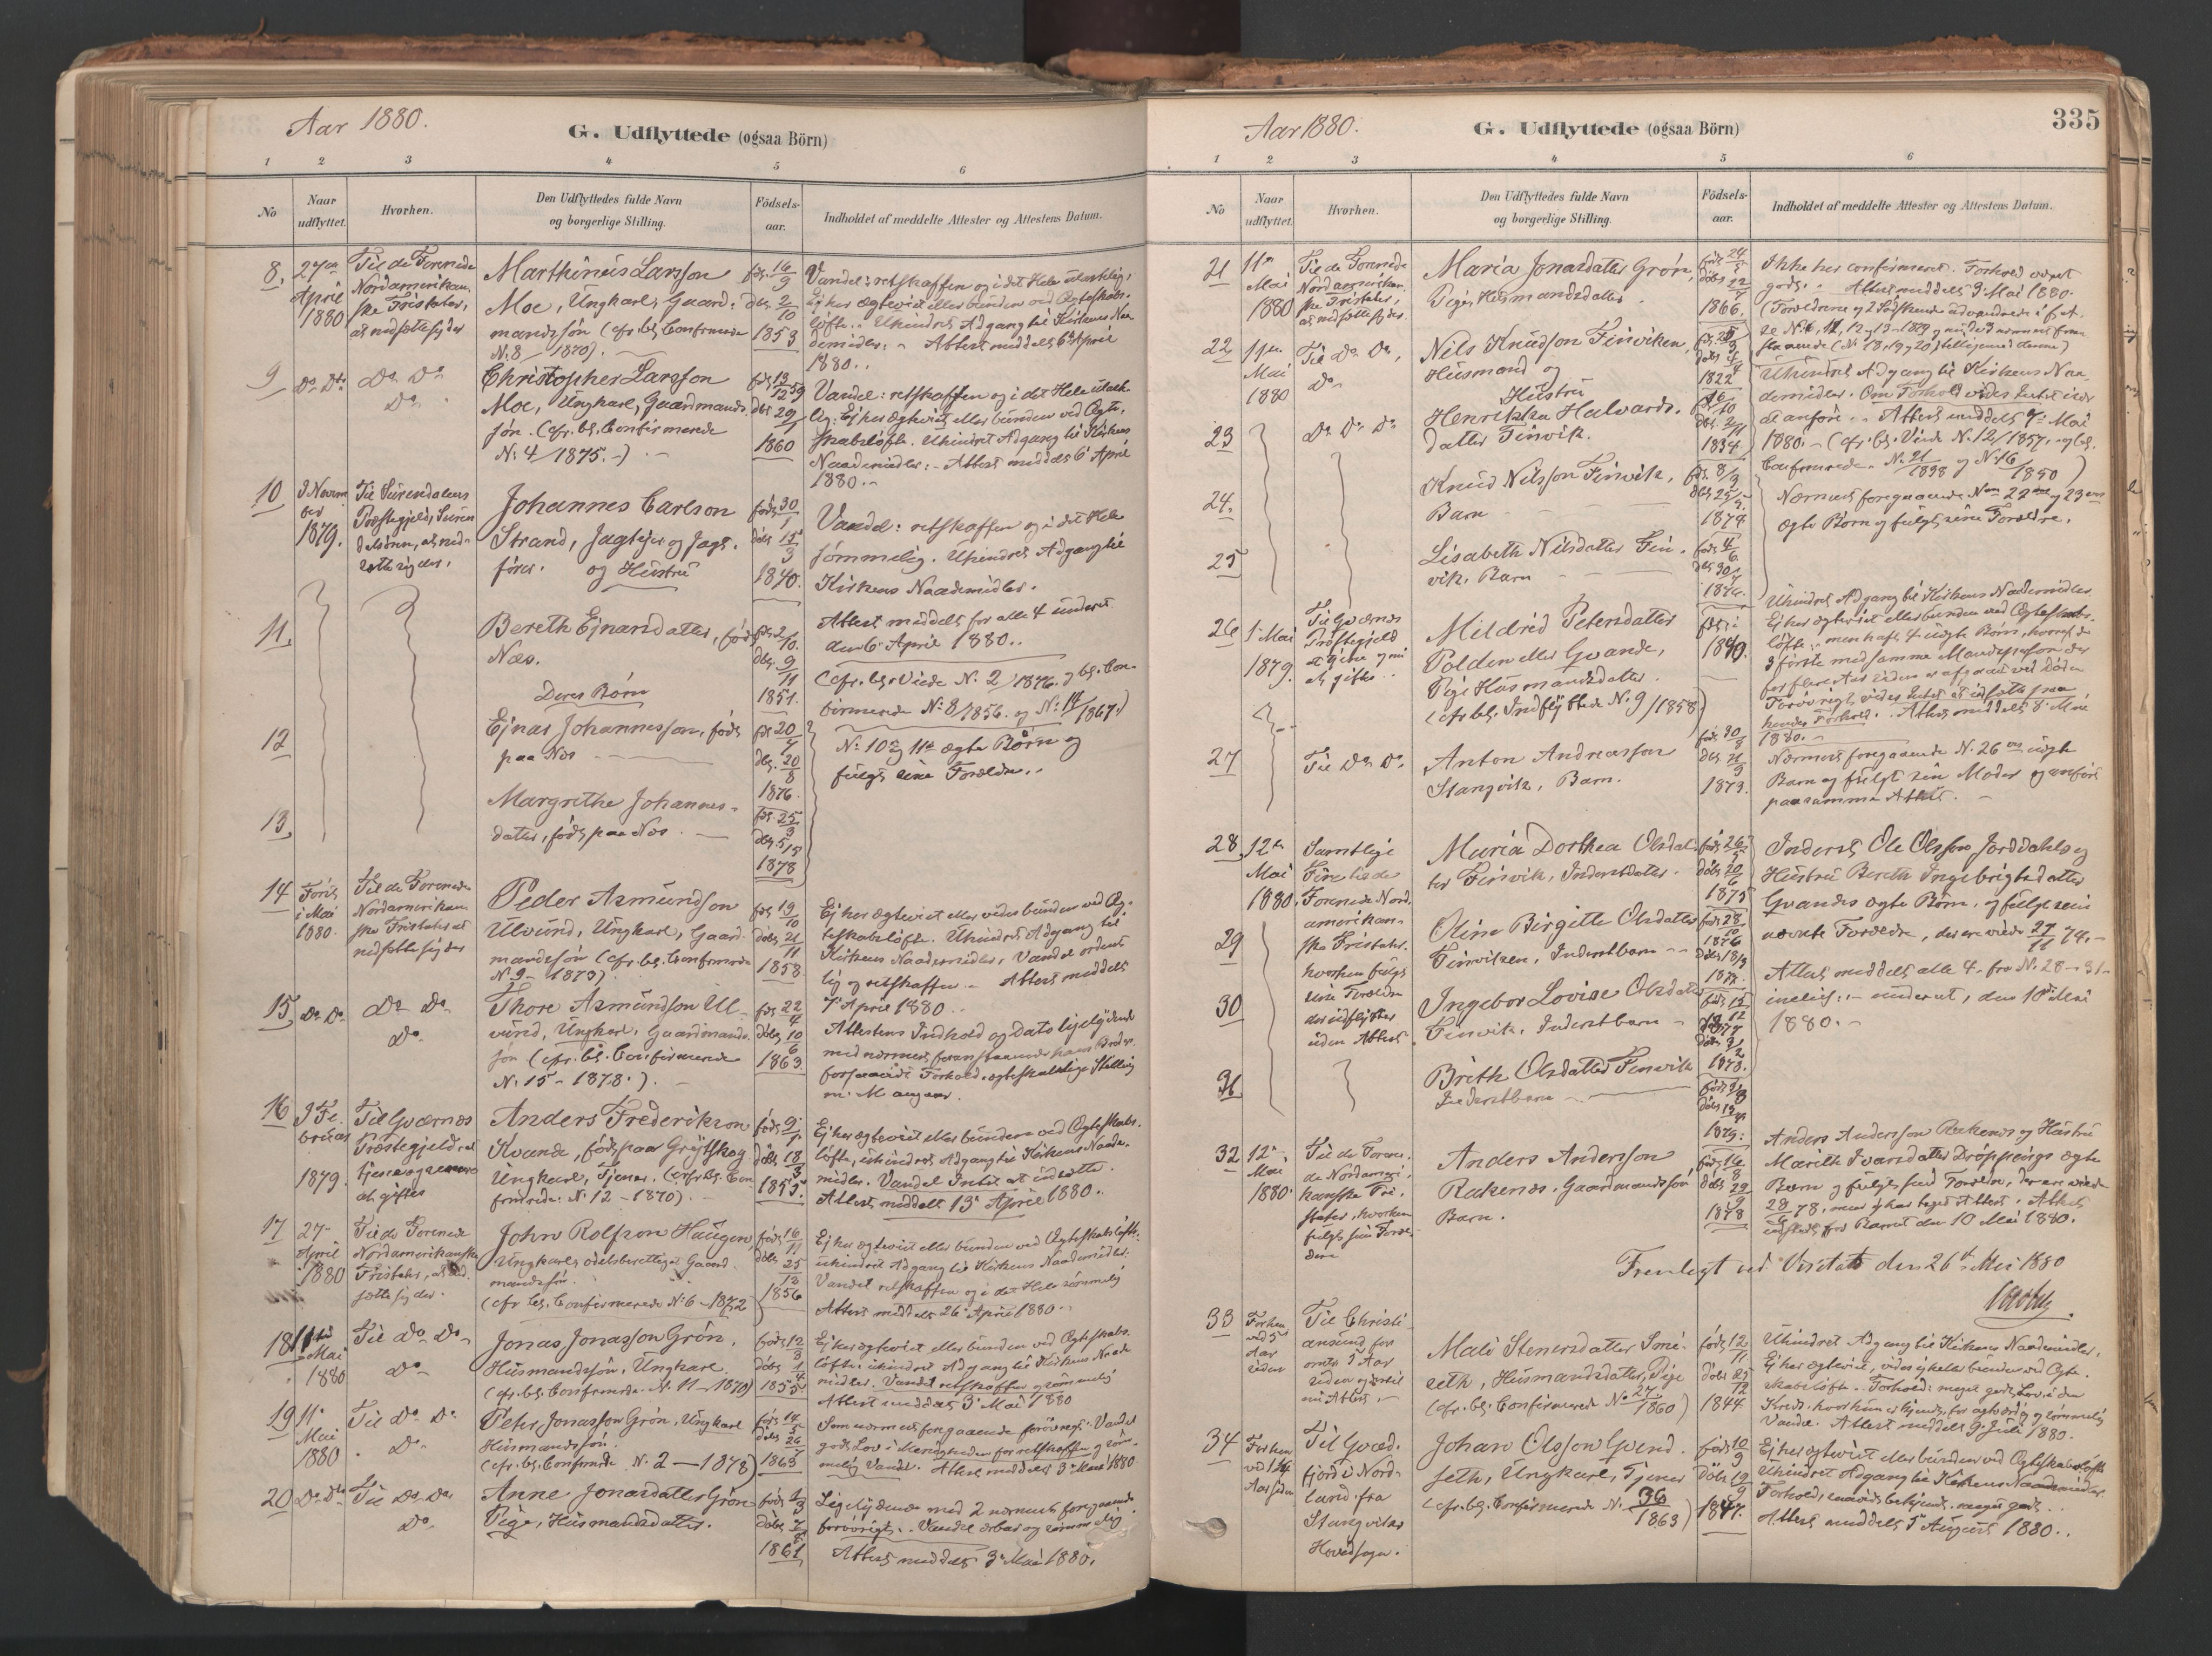 Aar 1880.
G. Udflyttede (ogsaa Börn)
1 2 3 4 5 6
No
Naar udflyttet.
Hvorhen.
Den Udflyttedes fulde Navn og borgerlige Stilling.
Födsels-aar.
Indholdet af meddelte Attester og Attestens Datum.
8.
27de April 1880
Til de Forenede
Nordamerikan-
ske Fristater,
at nedsætte sig der
Marthinus Larsson
Moe, Ungkarl, Gaard-
mandssøn (cfr. bl. Confirmerede
N. 8/1870).
fød. 16/9
døbt 2/10
1853
Vandel: retskaffen og i det Hele
Ej har ægteviet eller bunden ved Ægteskabs-
løfte. Uhindret Adgang til Kirkens Naa-
demidler. Attest meddelt 6te April
1880.
9
Do. Do.
Do. Do.
Do.
Christopher Larsson
Moe, Ungkarl, Gaardmands-
søn. (cfr. bl. Confirmerede
N. 4/1875.)
fød. 13/12 59
døbt 29/1
1860
Vandel: retskaffen og i det Hele
Ej har ægteviet eller bunden ved Ægte-
skabsløfte. Uhindret Adgang til Kirkens
Naademidler. Attest meddelt 6 April
1880.
10
9 Novem-
ber
1879.
Til Surendalens
Præstegjeld, Suren-
dalsøren, at ned-
sætte sig der.
Johannes Carlson
Strand,
og Hustru
født 30/1
døbt 15/3
1840.
Vandel: retskaffen og i det Hele
sømmelig. Uhindret Adgang til
Kirkens Naademidler.
11.
Bereth Ejnarsdatter, født
Næs.
født 2/10.
døbt 9/11
1851.
Attest meddelt for alle 4 under et
den 6 April 1880.
(cfr. bl. Viede N. 2/1876. og bl. Con-
firmerede N. 8/1856. og N. 14/1867.)
Deres Børn
12
Ejnar Johannesson, født
paa Næs
født 20/7
døbt 20/8
1876.
N. 10 og 11 ægte Børn og
fulgt sine Forældre.
13
Margrethe Johannes-
datter, født paa Næs
født 25/3
døbt 5/5
1878
14
Først
i Mai
1880.
Til de Forenede
Nordamerikan-
ske Fristater at
nedsætte sig der
Peder Asmundson
Ulvund, Ungkarl, Gaard-
mandssøn (cfr. bl. Confirmerede
N. 9 - 1873).
født 19/10
døbt 21/11
1858
Ej har ægteviet eller vides bunden ved Æg-
teskabsløfte. Uhindret Adgang til
Kirkens Naademidler. Vandel ordent-
lig og retskaffen. Attest meddelt
7 April 1880.
15
Do. Do.
Do. Do.
Do.
Thore Asmundson Ul-
vund, Ungkarl, Gaardmands-
søn (cfr. bl. Confirmerede
N. 15 - 1878.)
født 22/4
døbt 10/6
1863.
Attestens Indhold og Dato ligelydende
med nærmest foranstaaende hans Broder
forsaavidt Forhold, ægteskabelige Stilling
m. M angaar.
16
9 Fe-
bruar
1879.
Til Qværnæs
Præstegjeld at
tjene og senere
at giftes
Anders Frederikson
Kvande, født paa Grytskog
Ungkarl, Tjener. (cfr. bl. Con-
firmerede N. 12 - 1870).
født 9/1.
døbt 18/3
1855.
Ej har ægteviet eller bunden ved Ægteskabs-
løfte, uhindret Adgang til Kirkens Naade-
midler. Vandel Intet at udsætte.
Attest meddelt 13 April 1880.
17
27
April
1880
Til de Forenede
Nordamerikanske
Fristater, at ned-
sætte sig der.
John Rolfson Haugen,
Ungkarl, odelsberettiget Gaard-
mandssøn.
(cfr. bl. Confirmerede N. 6 - 1872)
født 16/11
døbt 25/12
1856
Ej har ægteviet eller bunden ved Ægteskabsløfte.
uhindret Adgang til Kirkens Naademidler.
Vandel retskaffen og i det Hele sømmelig
Attest meddelt 26 April 1880.
18
11te
Mai
1880
Til Do. Do.
Do.
Jonas Jonasson Grøn.
Husmandssøn, Ungkarl.
(cfr. bl. Confirmerede N. 11 - 1870)
født 12/3
døbt 1/4
1855
Ej har ægteviet eller bunden ved Ægteskabs-
løfte. uhindret Adgang til Kirkens Naade-
midler. Vandel retskaffen og sømmelig
Attest meddelt 3 Mai 1880
19
11
Mai
1880
Til Do. Do.
Do.
Peter Jonasson Grøn, Ungkarl
Husmandssøn.
(cfr. bl. Confirmerede N. 2 - 1878)
1863
Som nærmest foregaaende forøvrigt. Vandel
godt Lov i Menigheden for retskaffen og søm-
melig Vandel. Attest meddelt 3 Mai 1880
20
Do. Do.
Til Do. Do.
Do.
Anne Jonasdatter Grøn
Pige, Husmandsdatter.
født 1/3
1861
Ligelydende med 2 nærmest foregaaende
forøvrigt. Vandel ærbar og sømmelig
Attest meddelt 3 Mai 1880.
335
Aar 1880.
G. Udflyttede (ogsaa Börn)
1 2 3 4 5 6
No
Naar udflyttet.
Hvorhen.
Den Udflyttedes fulde Navn og borgerlige Stilling.
Födsels-aar.
Indholdet af meddelte Attester og Attestens Datum.
21
11
Mai
1880
Til de Forenede
Nordamerikan-
ske Fristater,
at nedsætte sig der.
Maria Jonasdatter Grøn,
Pige, Husmandsdatter.
1866.
Ikke her confirmeret. Forhold været
godt. Attest meddelt 9 Mai 1880.
(Forældrene og 2 Sødskende udvandrede i
22
11te
Mai
1880
Til Do. Do.
Do.
Nils Knudson Finviken,
Husmand og
Hustru
1822
Uhindret Adgang til Kirkens Naa-
demidler. Om Forhold vides Intet
at anføre. Attest meddelt 7 Mai
1880. (cfr. bl. Viede N. 12/1857. og bl.
Confirmerede N. 21/1838 og N. 16/1850)
23
Do. Do. Do.
Henrikka Halvards-
datter Finvik.
1834
24.
Knud Nilsson Finvik,
Barn
født 8/3
døbt 25/5
1874
Nærmest foregaaende N. 22 og 23
ægte Børn og fulgt sine Forældre.
25
Lisabeth Nilsdatter Fin-
vik, Barn
26
1 Mai
1879.
Til Qværnæs
Præstegjeld
at tjene og nu
at giftes
Mildrid Petersdatter
Polden eller Qvande,
Pige Husmandsdatter
(cfr. bl. Indflyttede N. 9/1858)
født i
1840.
Uhindret Adgang til Kirkens Naademidler.
Ej har ægteviet eller bunden ved Ægteskabs-
løfte, men haft 4 uægte Børn, hvoraf de
3 første med samme Mandsperson der
for flere Aar siden er afgaaet ved Døden
Forøvrigt vides Intet at udsætte paa
hendes Forhold. Attest meddelt 8 Mai
1880.
27
Til Do. Do.
Anton Andreasson
Stangvik, Barn.
født 30/8
døbt 21/9
1873.
Nærmest foregaaende N. 26 uægte
Barn og fulgt sin Moder og anført
paa samme Attest.
28
12te
Mai
1880.
Samtlige
Fire til de
Forenede Nord-
amerikan-
ske Fristater.
hvorhen fulgt
sine Forældre
der udflytter
uden Attest.
Maria Dorthea Olsdat-
ter Finvik, Inderstdatter.
1875
Inderst Ole Olsson Jorddahls og
Hustru Bereth Ingebrigtsdatter
Qvandes ægte Børn, og fulgt sine
nævnte Forældre, der ere viede 27/11 74.
Attest meddelt alle 4 fra N. 28 - 31
inclus: under et, den 10 Mai
1880.
29
Oline Birgitte Olsdatter
Finviken, Inderstbarn
født 28/10
1876
30
Ingebor Lovise Olsdatter
Finvik, Inderstbarn
31
Brith Olsdatter Finvik
Inderstbarn
1879.
32
12
Mai
1880.
Til de Forene-
de Nordameri-
kanske Fri-
stater, hvorhen
fulgt sine Foræl-
dre
Anders Anderson
Rakenæs, Gaardmandssøn
Barn.
født 16/8
døbt 29/9
1878
Anders Andersson Rakenæs og Hustru
Marith Ivarsdatter Drøppings ægte
Barn og fulgt sine Forældre, der ere viede
78, men ej har taget Attest. Attest
udstedt for Barnet den 10 Mai 1880.
Fremlagt ved Visitats den 26de Mai 1880
33
Forhen
ved 5
Aar
siden
Til Christi-
ansund for
omtr. 5 Aar
siden
Mali Stenersdatter Smi-
seth, Husmandsdatter, Pige
(cfr. bl. Confirmerede N. 27/1860)
født 12/11
døbt 25/12
1844
Uhindret Adgang til Kirkens Naademidler.
Ej har ægteviet, vides ej heller bunden ved Ægte-
skabsløfte. Forhold: meget godt Lov i den
Kreds hvor hun er kjendt for agtværdig og sømmelig
Vandel. Attest meddelt 9 Juli 1880.
34
Forhen
ved 1/4
Aar siden
Til Qvæd-
fjord i Nord-
land fra
Stangviks
Hovedsogn.
Johan Olsson Qvend-
seth, Ungkarl, Tjener
(cfr. bl. Confirmerede N. 36/1863)
født 10/9
døbt 19/9
1847.
Ej har ægteviet eller bunden ved Ægteskabsløfte
Uhindret Adgang til Kirkens Naademidler.
Forhold, saavidt bekjendt, meget godt.
Attest meddelt 5 August 1880.